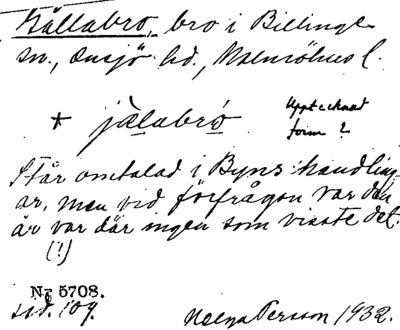 Gällabro, bro i Billinge
sn., Onsjö hd., Malmöhus l.
* jälabró
Upptecknad
form?
Står omtalad i Byns handling-
ar, men vid förfrågan var den
är var där ingen som visste det.
(!)
Nr 5708.
sid. 109.
Helga Persson 1932.